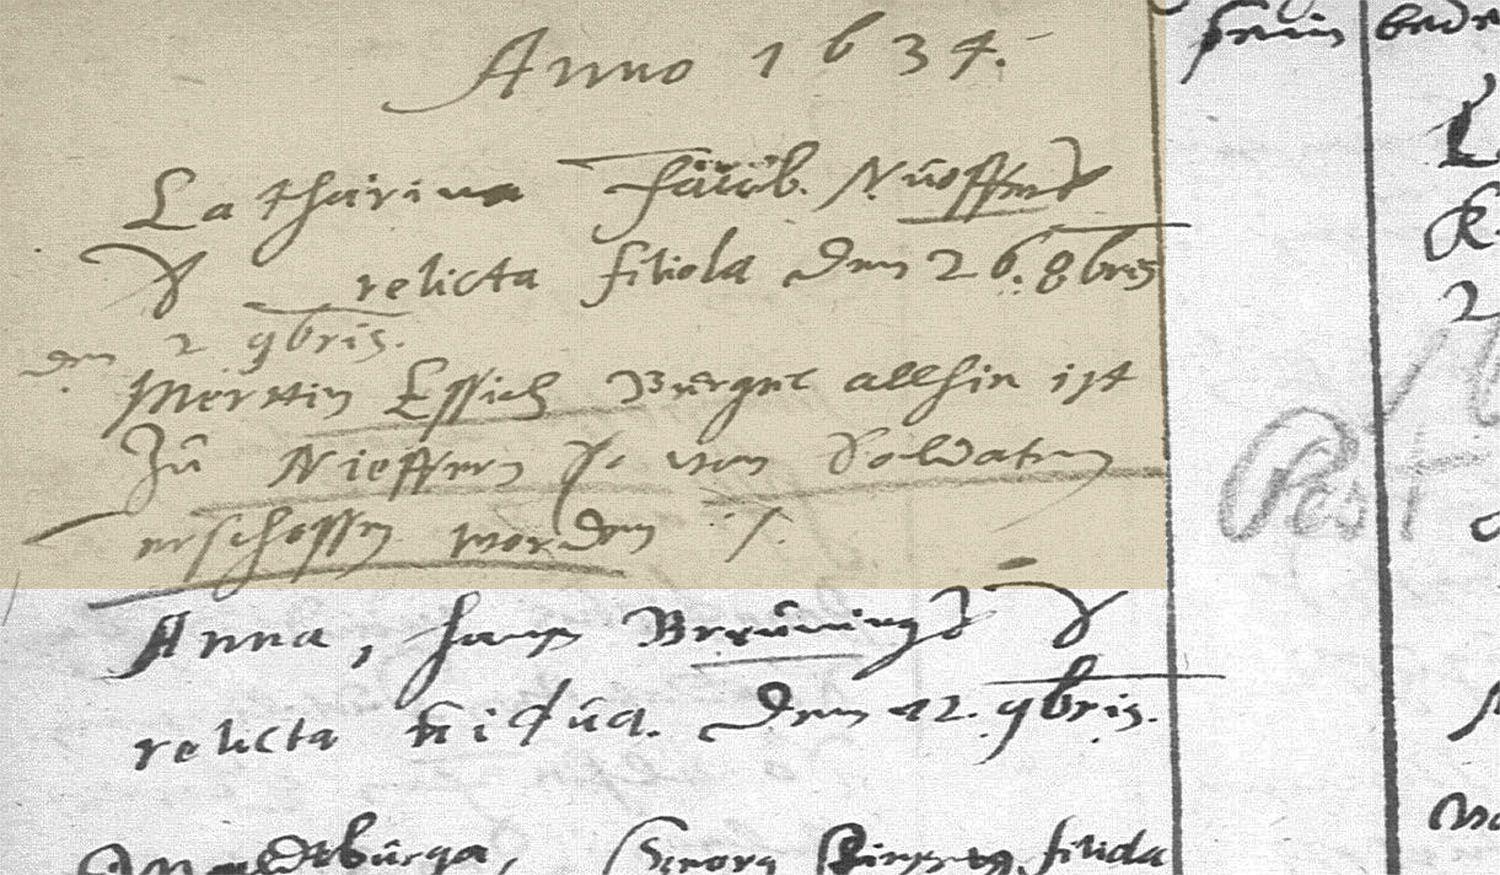 Anno 1634.
Catharina Jacob Nüeffers
relicta filiola den 26. 8bris
den 2 9bris.
Merttin Essich Burger allhie ist
Zů Nieffern von Soldaten
erschossen worden ./.
Anna, Hanss Breünings
relicta vidua. Den 12. 9bris.
Pest
Georg filiola